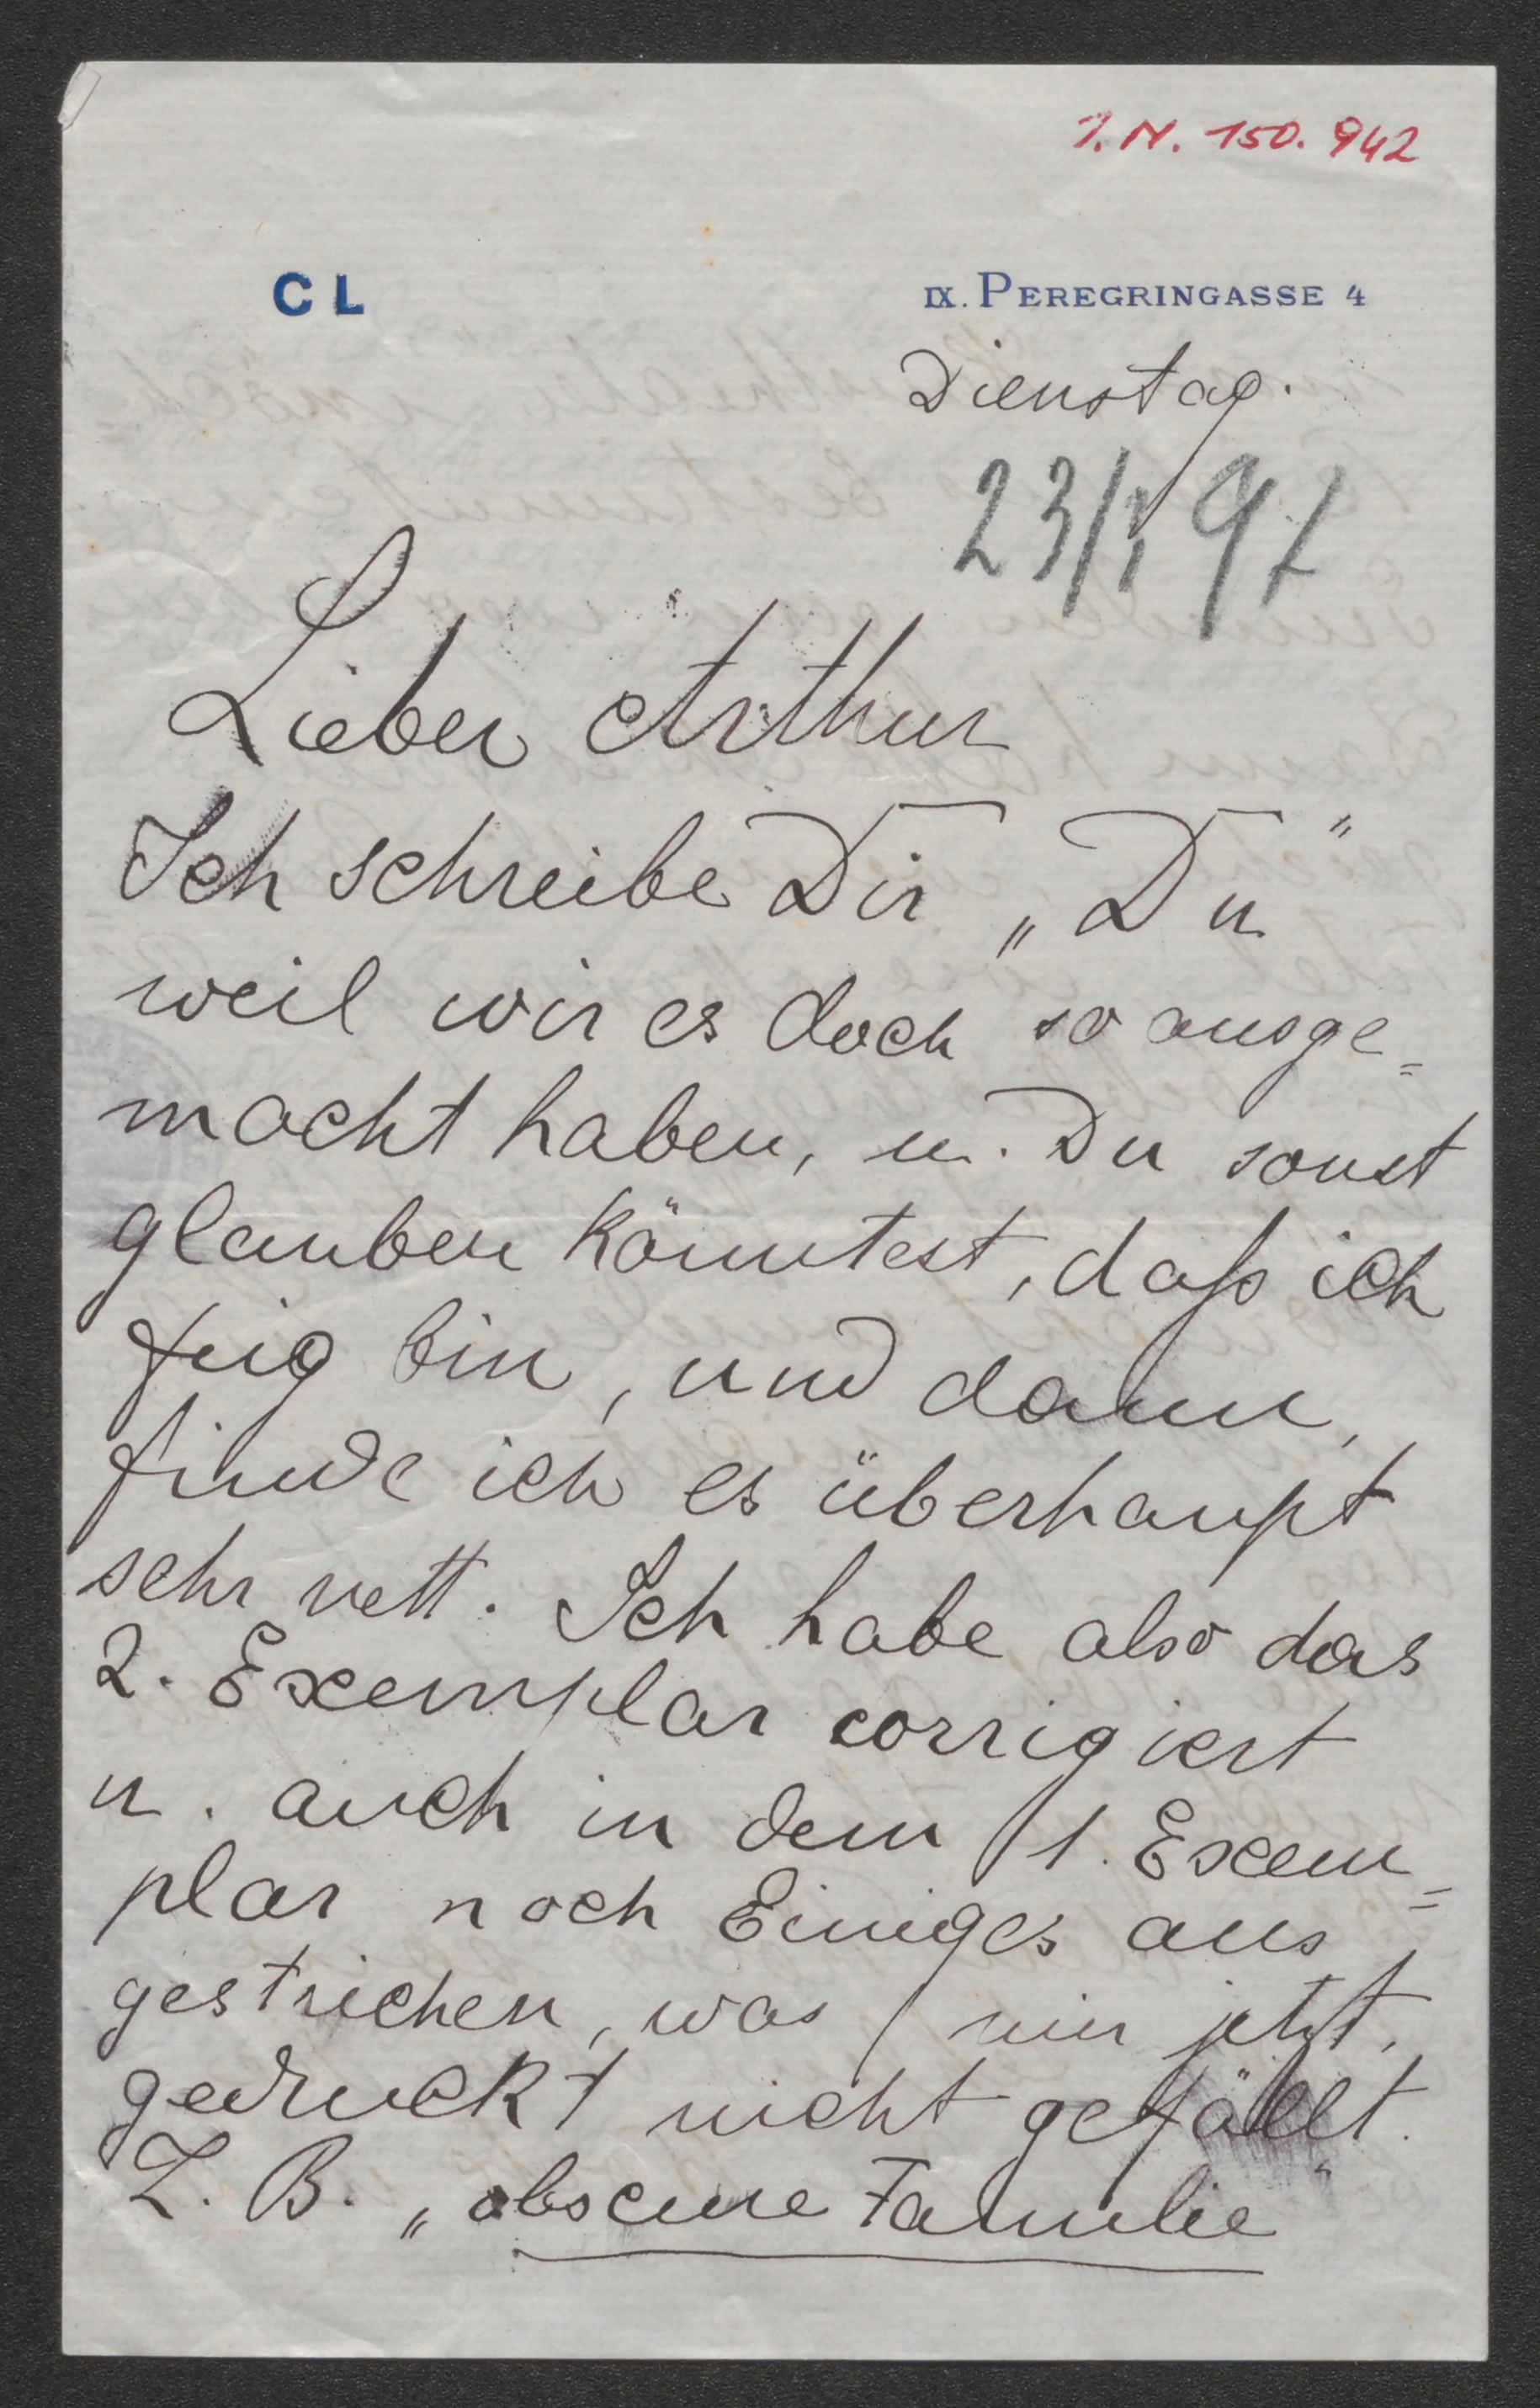 I.N. 150.942
CL
IX. PEREGRINGASSE 4
Dienstag.
23/I 97
Lieber Arthur
Ich schreibe Dir „Du“
weil wir es doch so ausge=
macht haben, u. Du sonst
glauben könntest, daß ich
feig bin, und dann,
finde ich es überhaupt
sehr nett. Ich habe also das
2. Exemplar corrigiert
u. auch in dem 1. Exem=
plar noch Einiges aus
gestrichen, was mir jetzt,
gedruckt nicht gefällt.
Z. B. „obscure Familie“